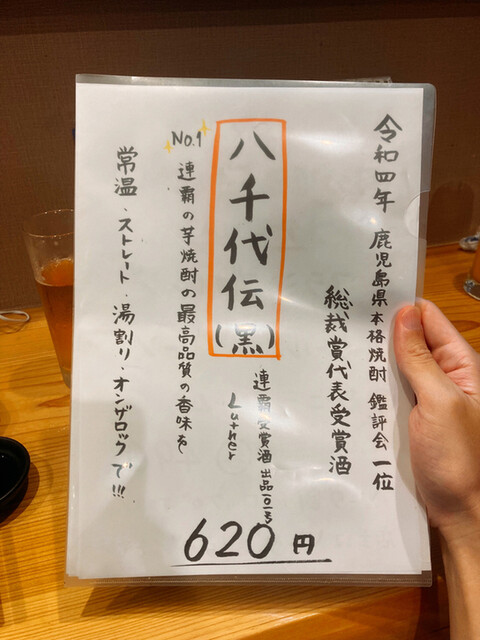 令和四年 鹿児島県本格焼酎 鑑評会 一位
総裁賞代表受賞酒
八千代伝(黒)
連覇受賞酒 出品101号
Luther
No.1
連覇の芋焼酎の最高品質の香味を
常温・ストレート・湯割り・オンザロックで!!!
620円